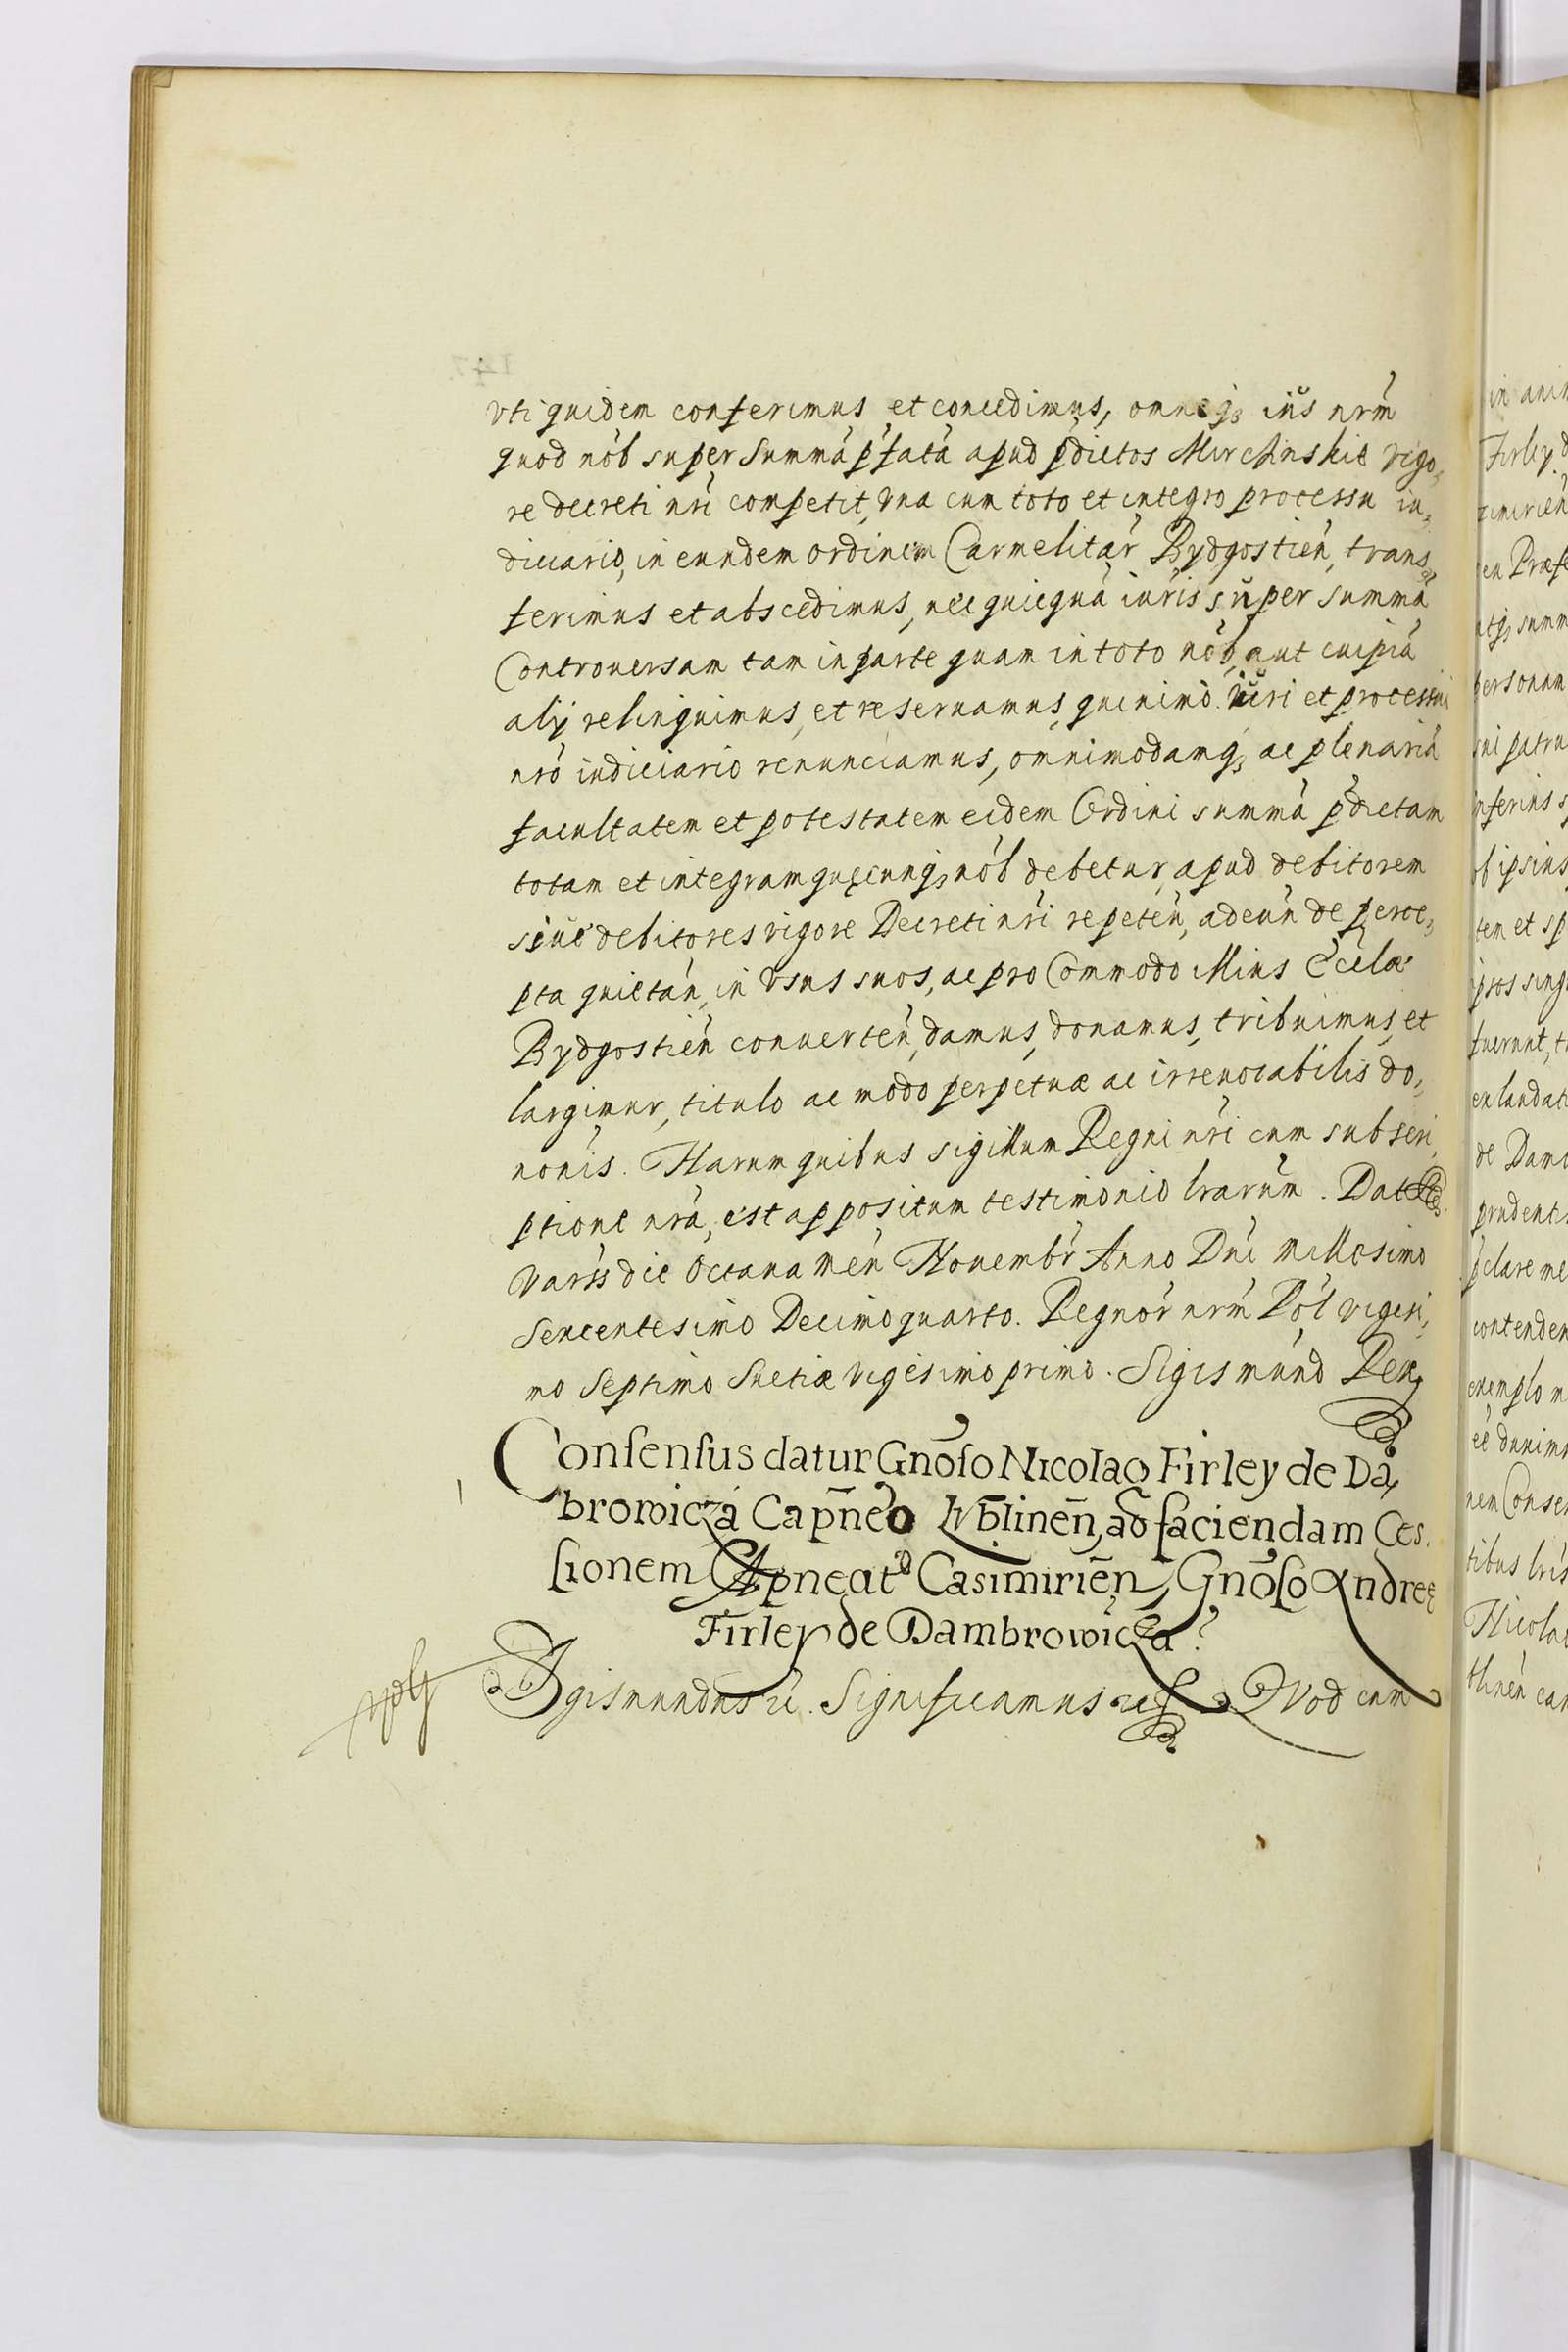 vti quidem conferimus et concedimus, omneq3 ius nrm̃
quod nob super Summã p̃fatã apud p̃dictos Mirchinskie vigo,
re decreti nri competit, vna cum toto et integro processu iu,
diciario, in eundem ordinem Carmelitar Bydgostien, trans
ferimus et abscedimus, nec quicquã iuris super summã
Controuersam tam in parte quam in toto nob, aut cuipiã
alij relinquimus, et reseruamus, quinimo iuri et processui
nro iudiciario renunciamus, omnimodamq3 ac plenariã
facultatem et potestatem eidem Ordini summã p̃dictam
totam et integram quęcunq3 nob debetur, apud debitorem
siue debitores vigore Decreti nri repeten, adeun de perce,
pta quietan, in Vsus suos, ac pro Commodo illius Ecclæ
Bydgostien conuerten, damus, donamus, tribuimus, et
largimur, titulo ac modo perpetuæ ac irreuocabilis do,
nonis. Harum quibus sigillum Regni nri cum subscri,
ptione nrã, est appositum testimonio lrarum. Dat
Vars die Octaua men Nouembr Anno Dni millesimo
Sexcentesimo Decimoquarto. Regnor nrm Pol vigesi,
mo Septimo Suetiæ vigesimo primo. Sigismund Rex
Consensus datur Gnoso Nicolao Firley de Dą
browiczá Capneo Lvblinen, ad faciendam Ces
sionem Capneat Casimirien, Gnoso Andreę
Firley de Dambrowicza
Sigismundus r. Significamus r. Quod cum
in ani
Firley d
zimirien
Præfe
atq3 summ
personam
sui patru
inferius s
ob ipsius
tem et sp
ipsos sing
fuerunt, t
laudat
de Dam
prudenti
p̃clare me
contenden
exemplo n
nem Conse
tibus lris
Nicola